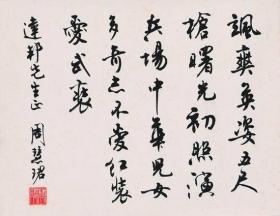 飒爽英姿五尺
枪曙光初照演
兵场中华儿女
多奇志不爱红装
爱武装
达邦先生正 周慧珺